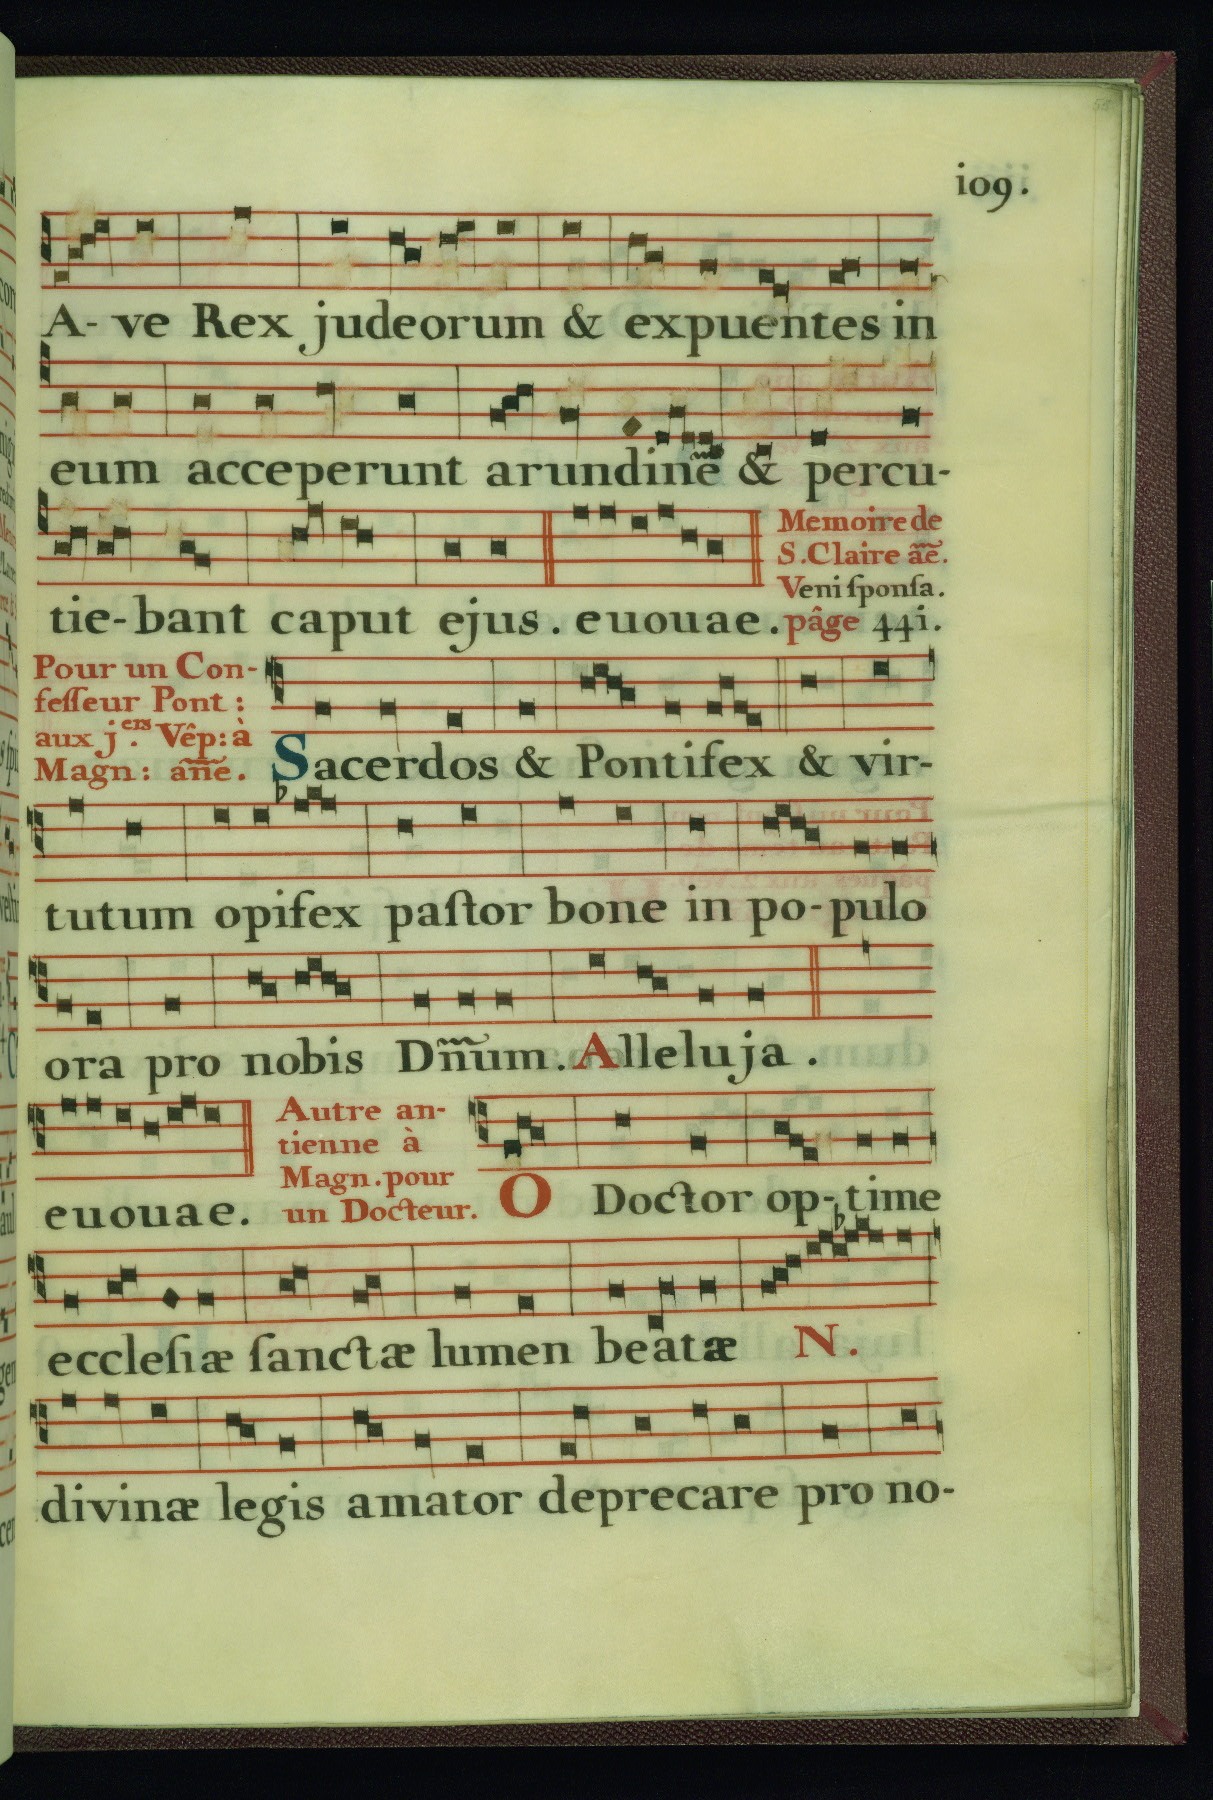 109.
A-ve Rex judeorum & expuentes in
eum acceperunt arundinē & percu-
tie-bant caput ejus. euouae.
Memoire de
S. Claire añe.
Veni ſponſa.
pâge 441.
Pour un Con-
feſſeur Pont:
aux j.ers Vêp: à
Magn: añe.
Sacerdos & Pontifex & vir-
tutum opifex paſtor bone in po-pulo
ora pro nobis Dñum. Alleluja.
euouae.
Autre an-
tienne à
Magn. pour
un Docteur.
O Doctor op-time
eccleſiæ ſanctæ lumen beatæ N.
divinæ legis amator deprecare pro no-